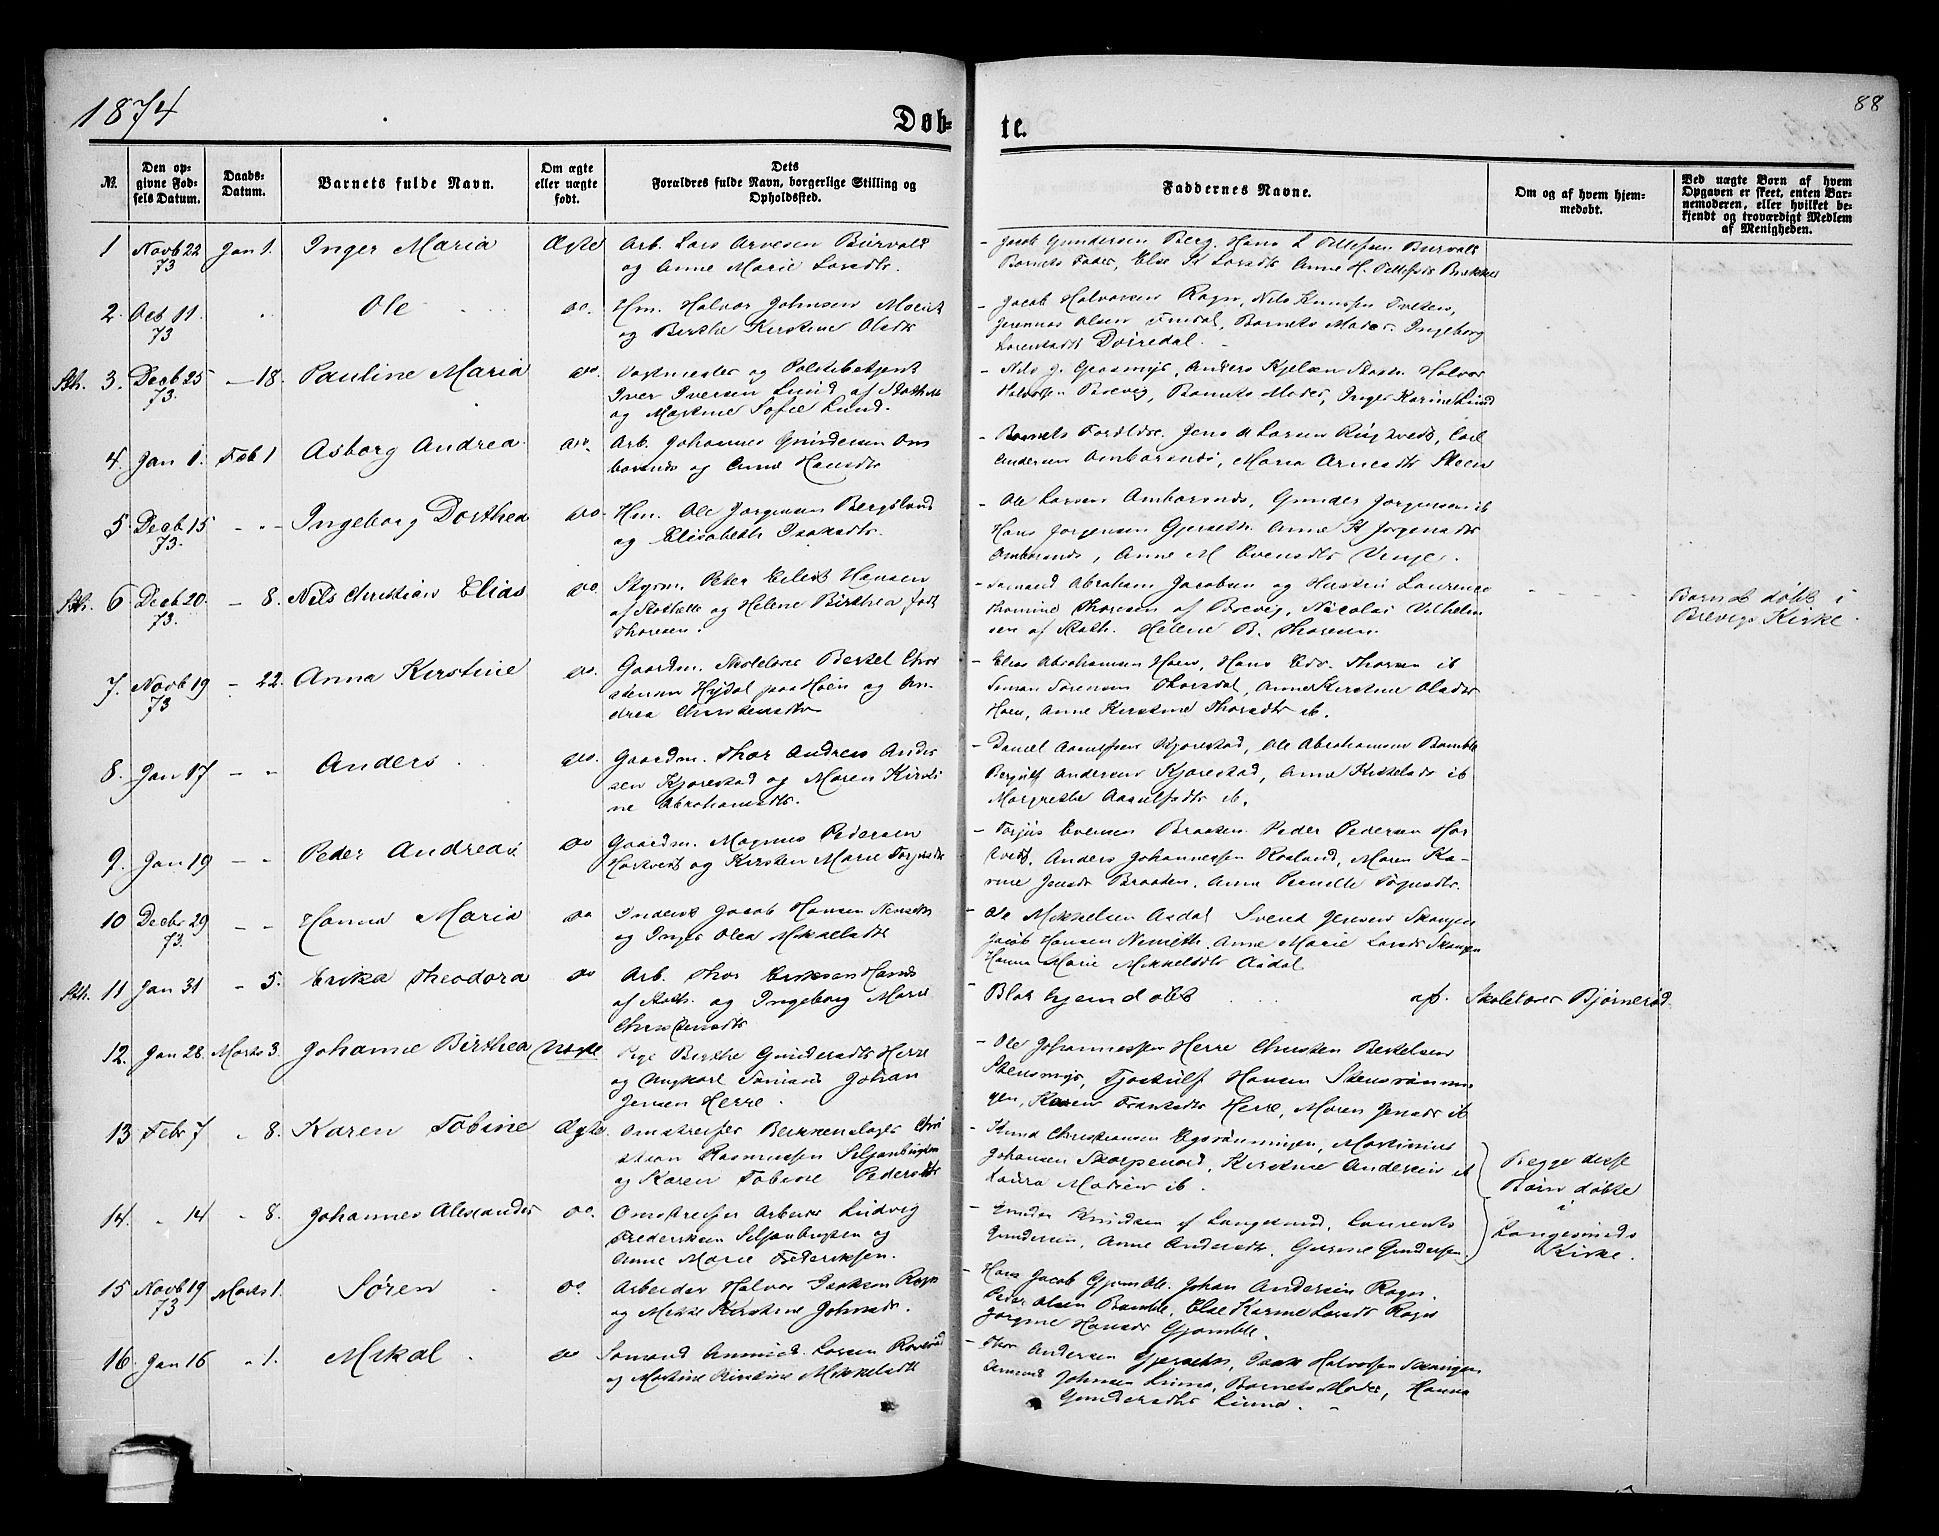 1874
Døb-
te.
88
№.
Den op-
givne Fød-
sels Datum.
Daabs-
Datum.
Barnets fulde Navn.
Om ægte
eller uægte
født.
Dets
Forældres fulde Navn, borgerlige Stilling og
Opholdssted.
Faddernes Navne.
Om og af hvem hjem-
medøbt.
Ved uægte Børn af hvem
Opgaven er skeet, enten Bar-
nemoderen, eller hvilket be-
kjendt og troværdigt Medlem
af Menigheden.
1 Novb 22 Jan 1. Inger Maria Ægte Arb. Lars Arvesen
73 og Anne Marie Larsdtr.
Jacob Gundersen Berg, Hans
Barnets Fader, Else K Larsdtr Anne H.
2. Oct 11. Ole do. Hm. Halvor Johnsen
73 og Birthe Kirstine Olsdtr
Jacob Halvorsen Rogn, Nils Knudsen Tveten,
Olsen Findal, Barnets Moder. Ingeborg
Sth. 3. Decb 25 18. Pauline Maria do. og Politibetjent
73. Iver Iversen Lund af Stathelle
og Martine Sofie Lund.
Nils J. Grasmyr, Anders
Halvorsen Brevig, Barnets Moder, Inger Karine Lund
4. Jan 1. Feb 1 Asborg Andrea do. Arb. Johannes Gundersen Om
og Anne Hansdtr
Barnets Forældre. Jens Larsen Carl
Andersen Omborsnes, Maria Arnesdtr Skeen
5 Decb 15 Ingeborg Dorthea do Hm. Ole Jørgensen Bergsland
73. og Elisabeth Isaksdtr.
Ole Larsen Omborsnes, Gunder Jørgensen ib
Hans Jørgensen Gjerseth. Anne K Jørgensdtr
Omborsnes, Anne M Evensdtr
Sth. 6 Decb 20. 8. Nils Christian Elias do. Styrm. Peter Eilert Hansen
73. af Stathelle og Helene Birthea født
Thoresen.
Sømand Abraham Jacobsen og Hustru Laurence
Thoresen af Brevig, Nicolai Vilhelm
sen af Stath. Helene B. Thoresen
Barnet døbt i
Brevigs Kirke.
7. Novb 19 22. Anna Kirstine do. Gaardm. Skolelærer Bertel Chri
73 stensen Hydal paa Hoen og An
drea Christensdtr
Elias Abrahamsen Hoen, Hans Edv. Thorsen ib
Simon Sørensen Thorsdal, Anne Kirstine Olsdtr
Hoen, Anne Kirstine Thorsdtr ib.
8. Jan 17 Anders do. Gaardm. Thor Andreas Ander
sen Kjørestad og Maren Kirsti
ne Abrahamsdtr.
Daniel Aanulfsen Kjørestad, Ole Abrahamsen Bamble
Bergulf Andersen Kjørestad, Anne ib
Margrethe Aanulfsdtr ib.
9. Jan 19 Peder Andreas do Gaardm. Magnus Pedersen
og Kirsten Marie
Torjus Evensen Braaten. Peder Pedersen Har
tvedt, Anders Johannessen Rosland, Maren Ka-
rine Jensdtr Braaten. Anne Pernille
10 Decbr 29 Hanna Maria do Inderst Jacob Hansen Nenseth
73. og Inger Olea Mikkelsdtr
Ole Mikkelsen Asdal Svend Jensen Skougen
Jacob Hansen Nenseth. Anne Marie Larsdtr Skougen
Hanna Marie Mikkelsdtr Asdal
Sth. 11 Jan 31 5. Erika Theodora do Arb. Thor Eriksen
af Stath. og Ingeborg Marie
Christensdtr
Blot hjemdøbt af. Skolelærer Bjørnerød
12. Jan 28. Marts 3. Johanne Birthea Uægte Pige Berthe Gundersdtr Herre
og Ungkarl Sømand Johan
Jensen Herre.
Ole Johannessen Herre Christen Bertelsen
Stensmyr, Tjostulf Hansen Stensrønnin
gen, Karen Herre, Maren Jensdtr ib
13 Febr 7 8. Karen Tobine Ægte. Omstreifer Blikkenslager Chri
stian Rasmussen Siljanbygden
og Karen Tobine Pedersdtr
Knud Christiansen Egsrønningen, Martinius
Johansen Skorpenord, Kirstine Andersen ib
Laura Madsen ib.
Begge disse
Børn døbte
i
Langesunds
Kirke.
14. 14 8. Johannes Alexander do. Omstreifer Arbeider Ludvig
Frederiksen Siljanbygden og
Anne Marie Frederiksen.
Gunder Knudsen af Langesund, Laurents
Gundersen, Anne Andersdtr. Gurine Gundersen.
15 Novb 19 Marts 1. Søren do. Arbeider Halvor Isaksen Rogn
73 og Mikke Kirstine Johnsdtr.
Hans Jacob Gjømble. Johan Andersen Rogn.
Peder Olsen Bamble. Else Karine Larsdtr Rogn
Jørgine Hansdtr Gjømble.
16. Jan 16 1. Mikal do Sømand Larsen
og Martine Kirstine Mikkelsdtr
Thor Andersen Gjerseth, Isak Halvorsen
Johnsen Linna, Barnets Moder, Hanna
Gundersdtr Linna.